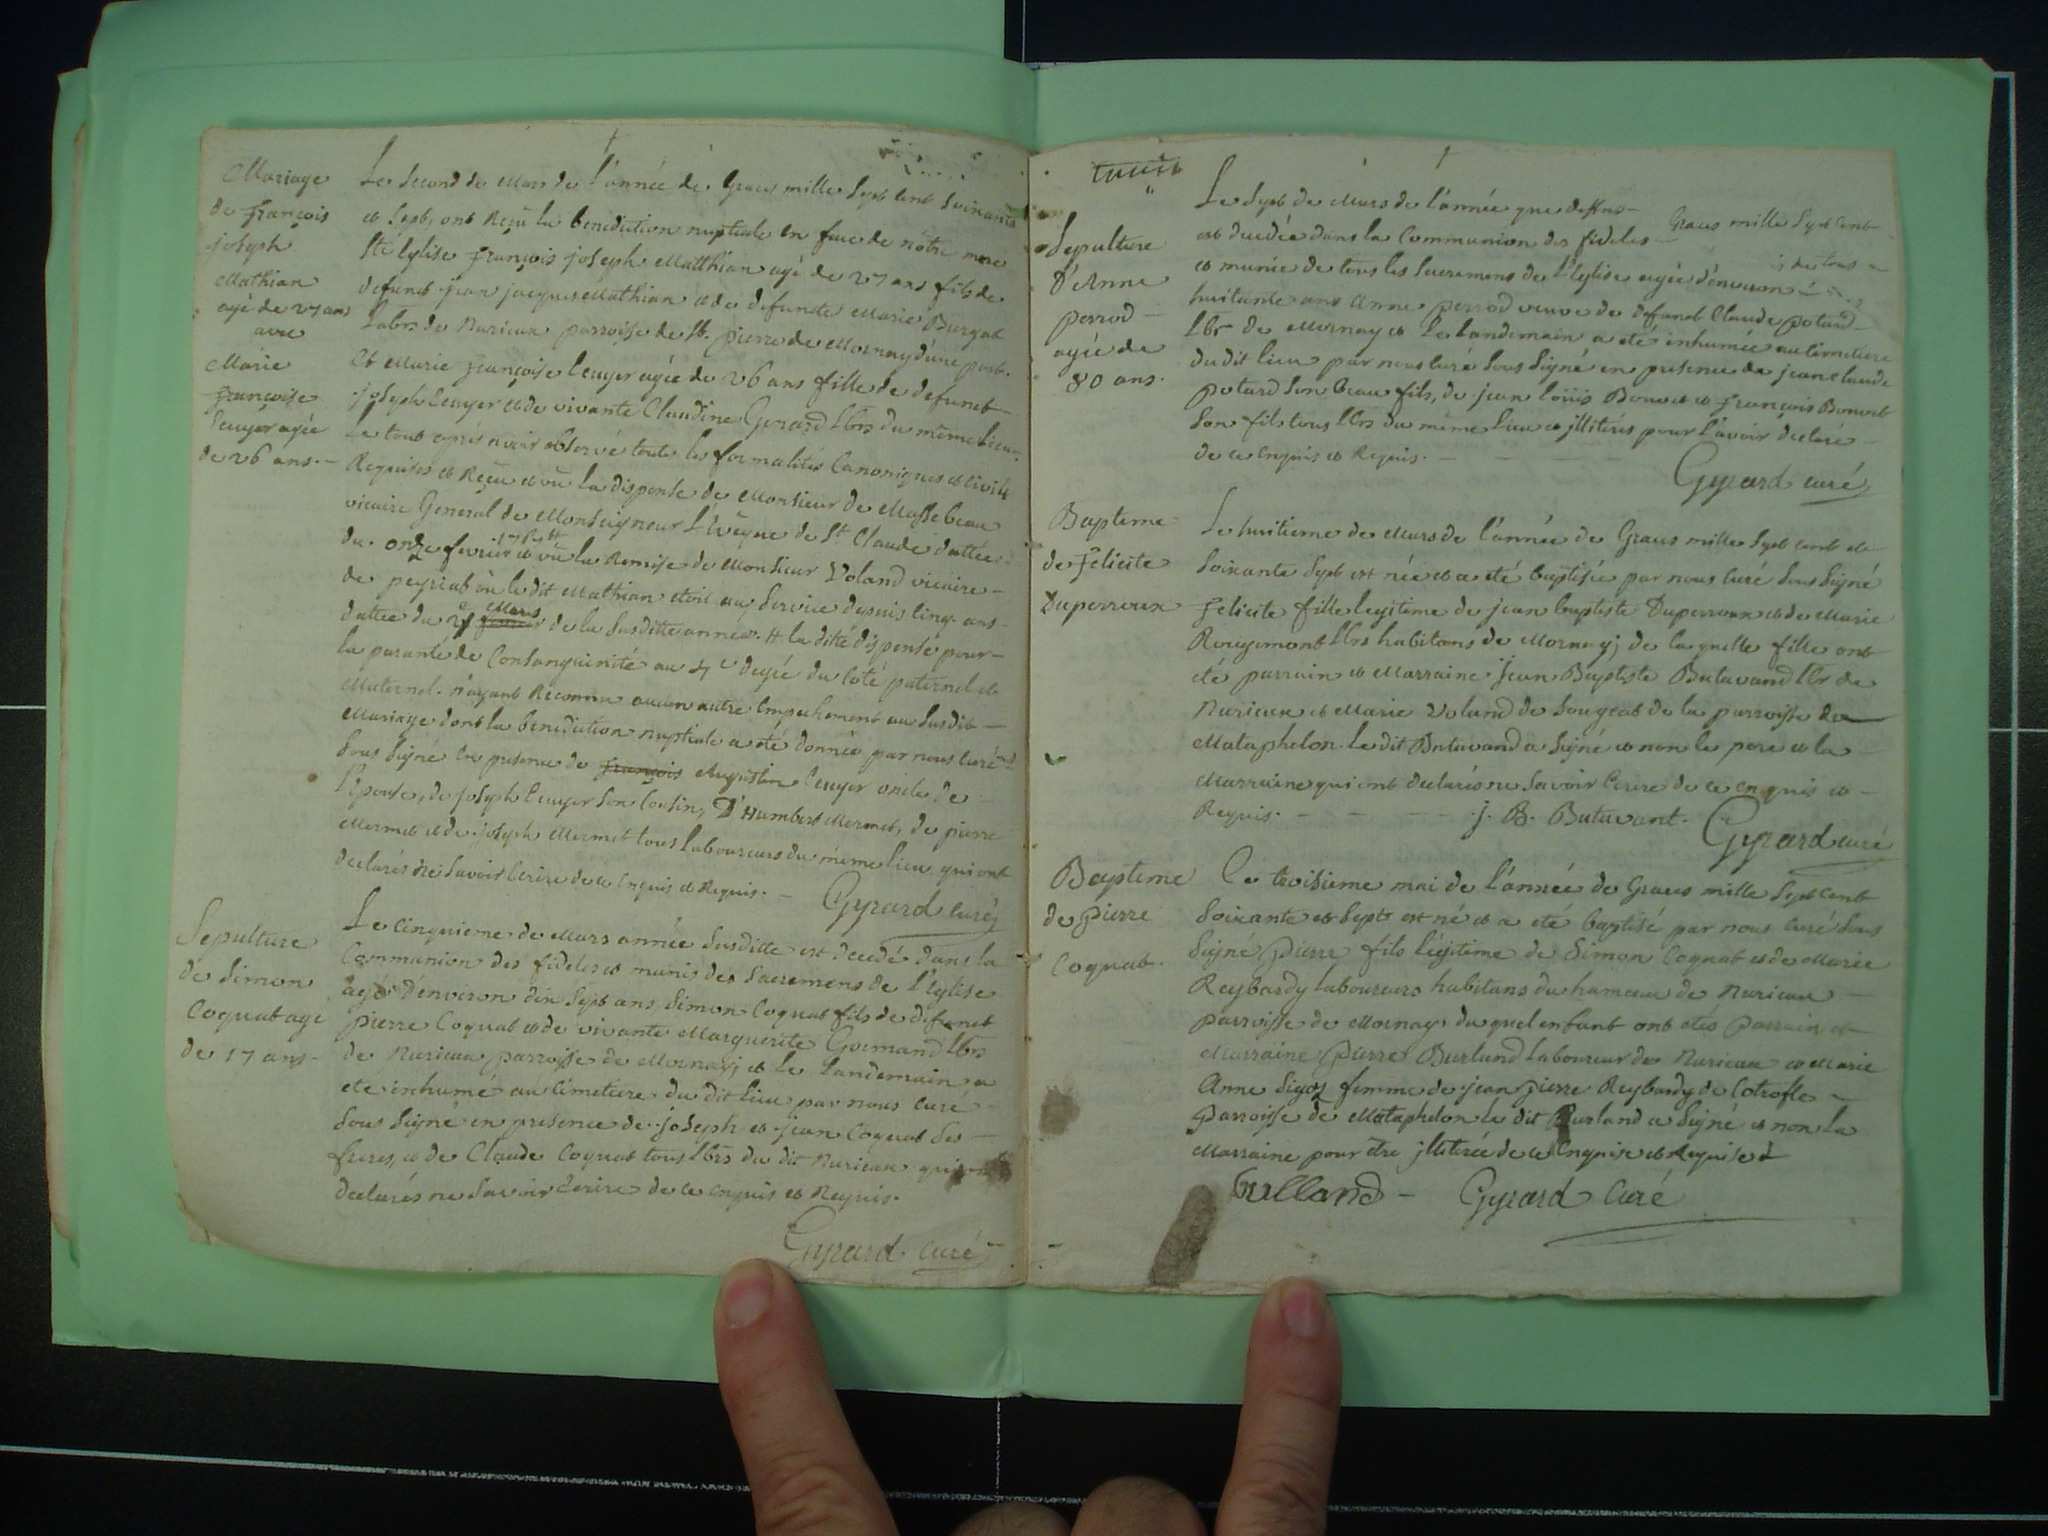 Mariage
de françois
joseph
Mathian
agé de 27 ans
avec
Marie
françoise
Ecuyer agée
de 26 ans. -
Le Second de Mars de l'année de Graces mille Sept Cent Soixante
et Sept, ont Reçu la benediction nuptiale en face de nôtre mere
Ste Eglise françois joseph Matthian agé de 27 ans fils de
defunct jean jacques Mathian et de defuncte Marie Burgat
Labrs de Nurieux parroisse de St. pierre de Mornay d'une part.
Et Marie françoise Ecuyer agée de 26 ans fille de defunct
joseph Ecuyer et de vivante Claudine Gerard lbrs du même lieu.
Le tout après avoir observé toute les formalités Canoniques et Civiles
Requises et Reçu et vû la dispense de Monsieur de Massebeau
vicaire General de Monseigneur l'Evêque de St Claude dattée
du onze fevrier 1767 et vû la Remise de Monsieur Voland vicaire
de peyriat où le dit Mathian etoit au Service depuis Cinq ans
dattee du Mars de la Susditte année. # la ditte dispense pour
la parenté de Consanguinité au 4e degré du Coté paternel et
Maternel. n'ayant Reconnu aucun autre Empechement au Susdit
Mariage dont la benediction nuptiale a été donnée par nous Curé
Sous Signé en presence de françois Augustin Ecuyer oncle de
l'Epouse, de joseph Ecuyer Son Cousin, D'Humbert Mermet, de pierre
Mermet et de joseph Mermet tous laboureurs du même lieu qui ont
declarés ne Savoir Ecrire de ce Enquis et Requis. -
Gyrard Curé
Sepulture
de Simon
Coquat agé
de 17 ans -
Le Cinquieme de Mars année Susditte est decedé dans la
Communion des fideles et munis des Sacremens de l'Eglise
agé d'environ dix Sept ans Simon Coquat fils de defunct
pierre Coquat et de vivante Marguerite Gormand lbrs
de Nurieux parroisse de Mornay et le landemain a
eté inhumé au Cimetiere du dit lieu par nous Curé
Sous Signé en presence de joseph et jean Coquat Ses
freres, et de Claude Coquat tous lbrs du dit Nurieux qui ont
declarés ne Savoir Ecrire de ce enquis et Requis.
Gyrard Curé
huit
Sepulture
D'Anne
perrod
agée de
80 ans.
Le Sept de Mars de l'année que dessus
Graces mille Sept Cent
est decedée dans la Communion des fideles
et munie de tous les Sacremens de l'Eglise agée d'environ
huitante ans Anne perrod veuve de defunct Claude potard
lbr de Mornay et le landemain a eté inhumée au Cimetiere
du dit lieu par nous Curé Sous Signé en presence de jean claude
potard Son beau fils, de jean loüis Benoit et françois Benoit
Son fils tous lbrs du même lieu et jllitérés pour l'avoir declaré
de ce Enquis et Requis.
Gyrard curé
Bapteme
de Felicite
Duperroux
Le huitieme de Mars de l'année de Graces mille Sept Cent et
Soixante Sept est née et a eté baptisée par nous Curé Sous Signé
Felicite fille legitime de jean baptiste Duperroux et de Marie
Rougemont lbrs habitans de Mornay; de laquelle fille ont
été parrain et Marraine jean Baptiste Butavand lbr de
Nurieux et Marie Voland de Sougeat de la parroisse de
Mataphelon. le dit Butavand a Signé et non le pere et la
Marraine qui ont declarés ne Savoir Ecrire de ce enquis et
Requis. - j. B. Butavant. Gyrard curé
Bapteme
de Pierre
Coquat.
Le troisieme mai de l'année de Graces mille Sept Cent
Soixante et Sept est né et a eté baptisé par nous Curé Sous
Signé Pierre fils légitime de Simon Coquat et de Marie
Reybardy laboureurs habitans du hameau de Nurieux
parroisse de Mornay, du quel enfant ont etés Parrain et
Marraine Pierre Burland laboureur de Nurieux et Marie
Anne femme de jean pierre Reybardy de Cotrofle
Parroisse de Mataphelon le dit Burland a Signé et non la
Marraine pour être jllitérée de ce Enquise et Requise
Bulland - Gyrard Curé